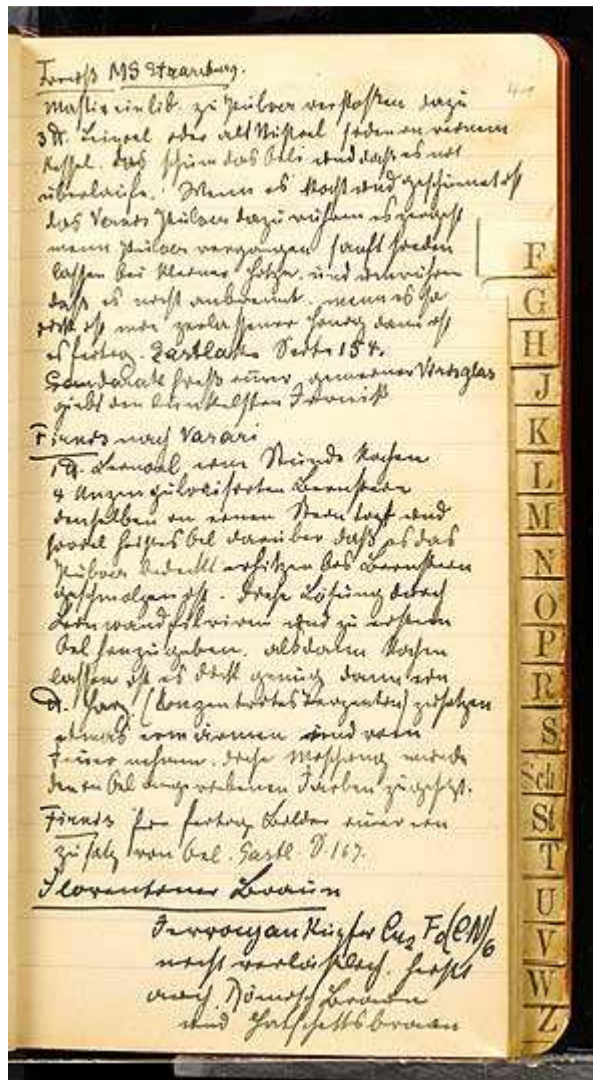 Firniß MS Straßburg.
Mastix ein lib. zu Pulver verstoßen dazu
3 ℔. Leinoel oder alt Nußoel sieden in reinem
Kessel. das schüm das Oeli und daß es nit
überlaufe. Wenn es kocht und geschäumt ist
das Vernis Pulver dazu rühren es zergeht
wenn Pulver vergangen sanft sieden
lassen bei kleiner Hitze und umrühren
daß es nicht anbrennt. wenn es so
dick ist wie zerlassener Honig dann ist
es fertig. Eastlake Seite 154.
Sandarak heißt immer gemeiner Vernisglas
giebt den dunkelsten Firniß
Firnis nach Vasari
1 ℔. Leinoel eine Stunde kochen
4 Unzen pulverisierten Bernstein
denselben in einen Steintopf und
soviel heißes Oel darüber daß es das
Pulver bedeckt erhitzen bis Bernstein
geschmolzen ist. diese Lösung durch
Leinwand filtriren und zu erstem
Oel hinzugeben. alsdann kochen
lassen ist es dick genug dann ein
℔. Harz (konzentrirtes Terpentin) zusetzen
etwas erwärmen und vom
Feuer nehmen. diese Mischung wurde
den in Oel angeriebenen Farben zugesetzt.
Firnis für fertige Bilder immer ein
Zusatz von Oel. Eastl. S. 167.
Florentiner Braun
Ferrocyan Kupfer Cu2 Fe(CN)6
nicht verläßlich. heißt
auch Römisch Braun
und Hatschettsbraun
F
G
H
J
K
L
M
N
O
P
R
S
Sch
St
T
U
V
W
Z